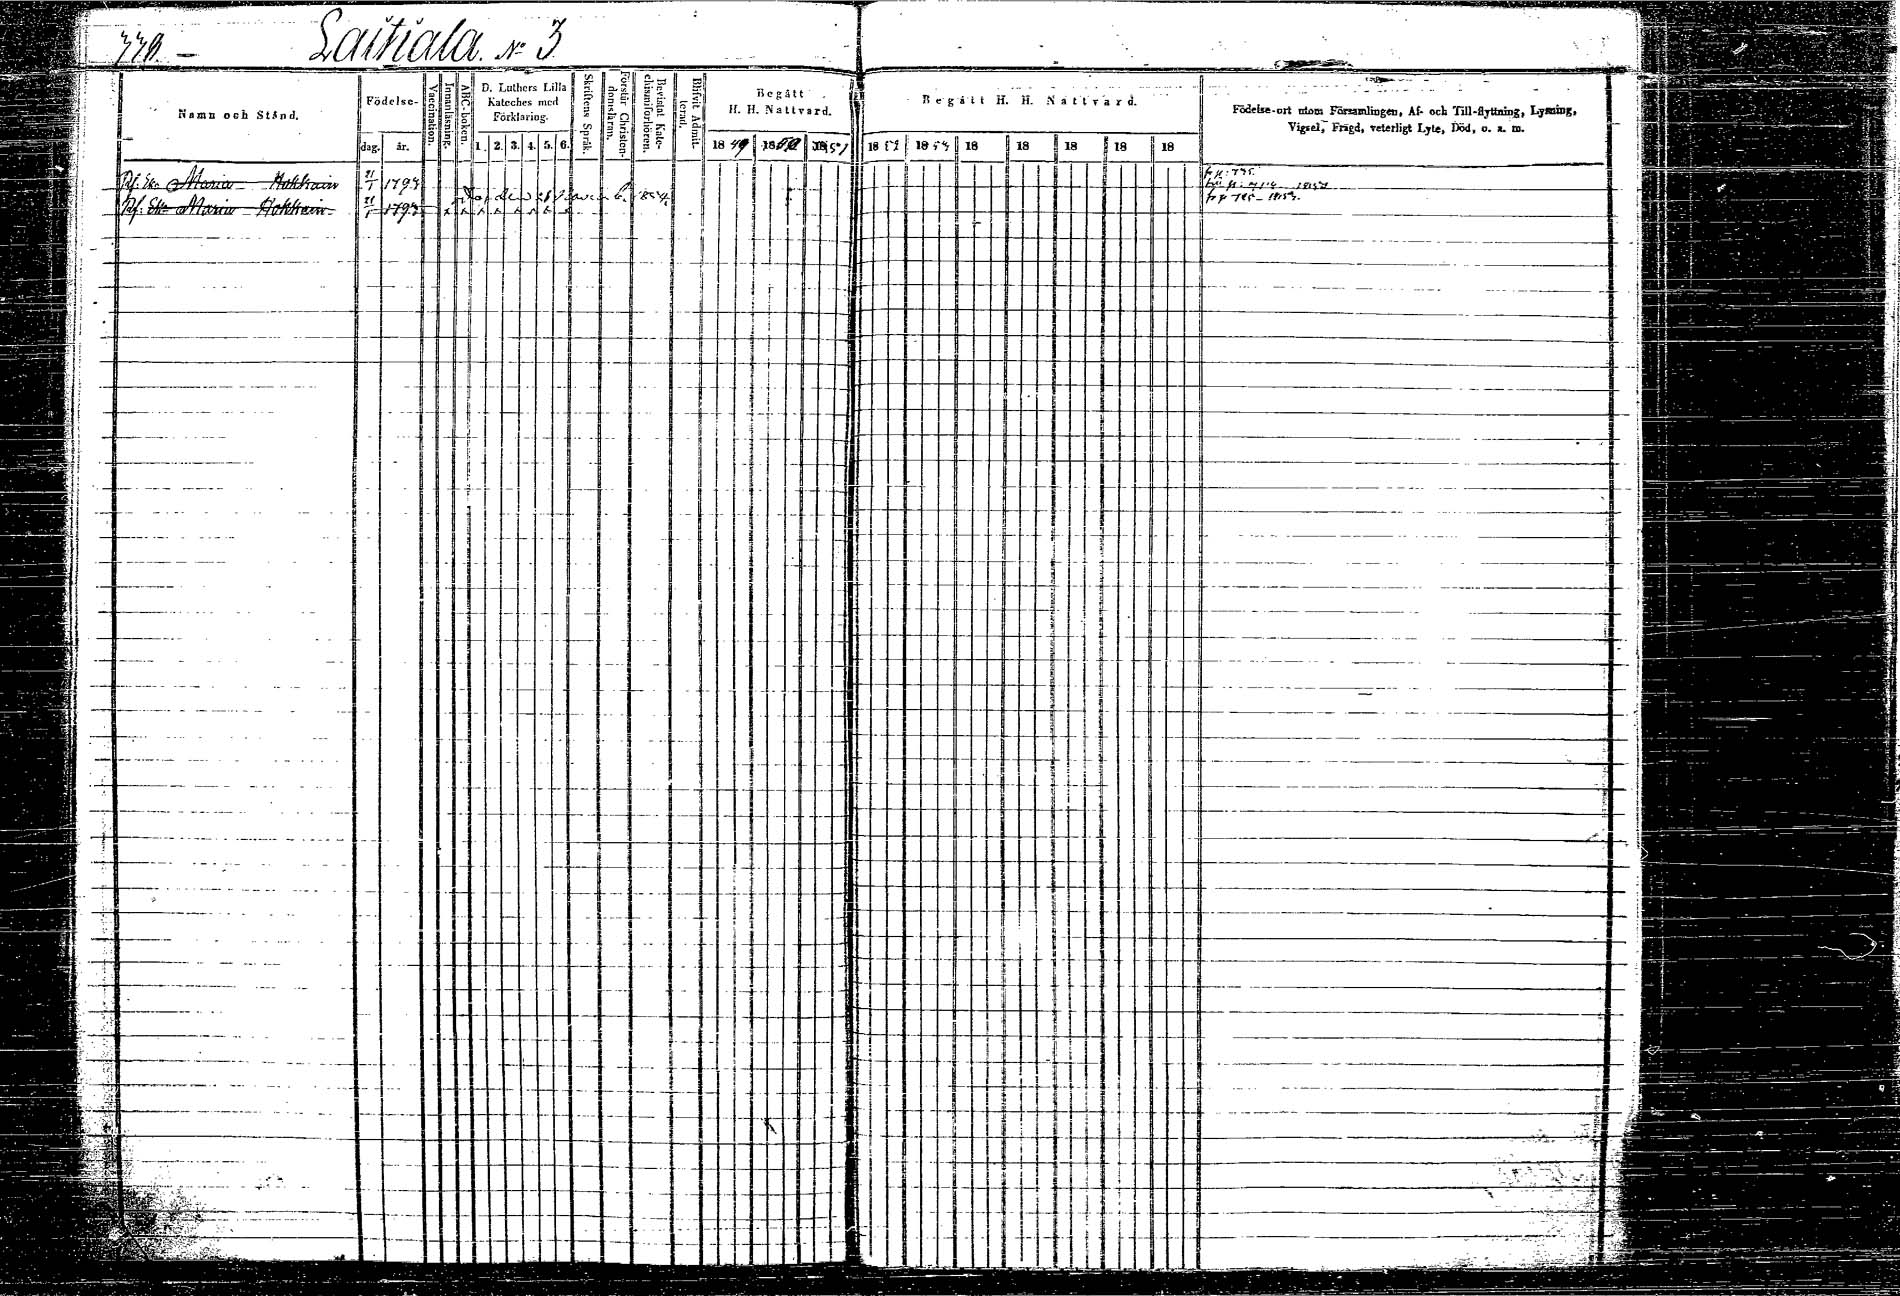 Laitiala. No 3
Namn och Stånd.
Födelse-
dag. år.
Vaccination.
Innanläsning.
ABC-boken.
D. Luthers Lilla
Kateches med
Förklaring.
1. 2. 3. 4. 5. 6.
Skriftens Språk.
Förstår Christen-
domsläran.
Bevistat Kate-
chismiförhören.
Blifvit Admit-
terad.
Begått
H. H. Nattvard.
18 49 18 50 18 51
Begått H. H. Nattvard.
18 52 18 53 18 18 18 18 18
Födelse-ort utom Församlingen, Af- och Till-flyttning, Lysning,
Vigsel, Frägd, veterligt Lyte, Död, o. s. m.
Maria Hokkain 21/1 1793
Maria Hokkain 21/1 1793